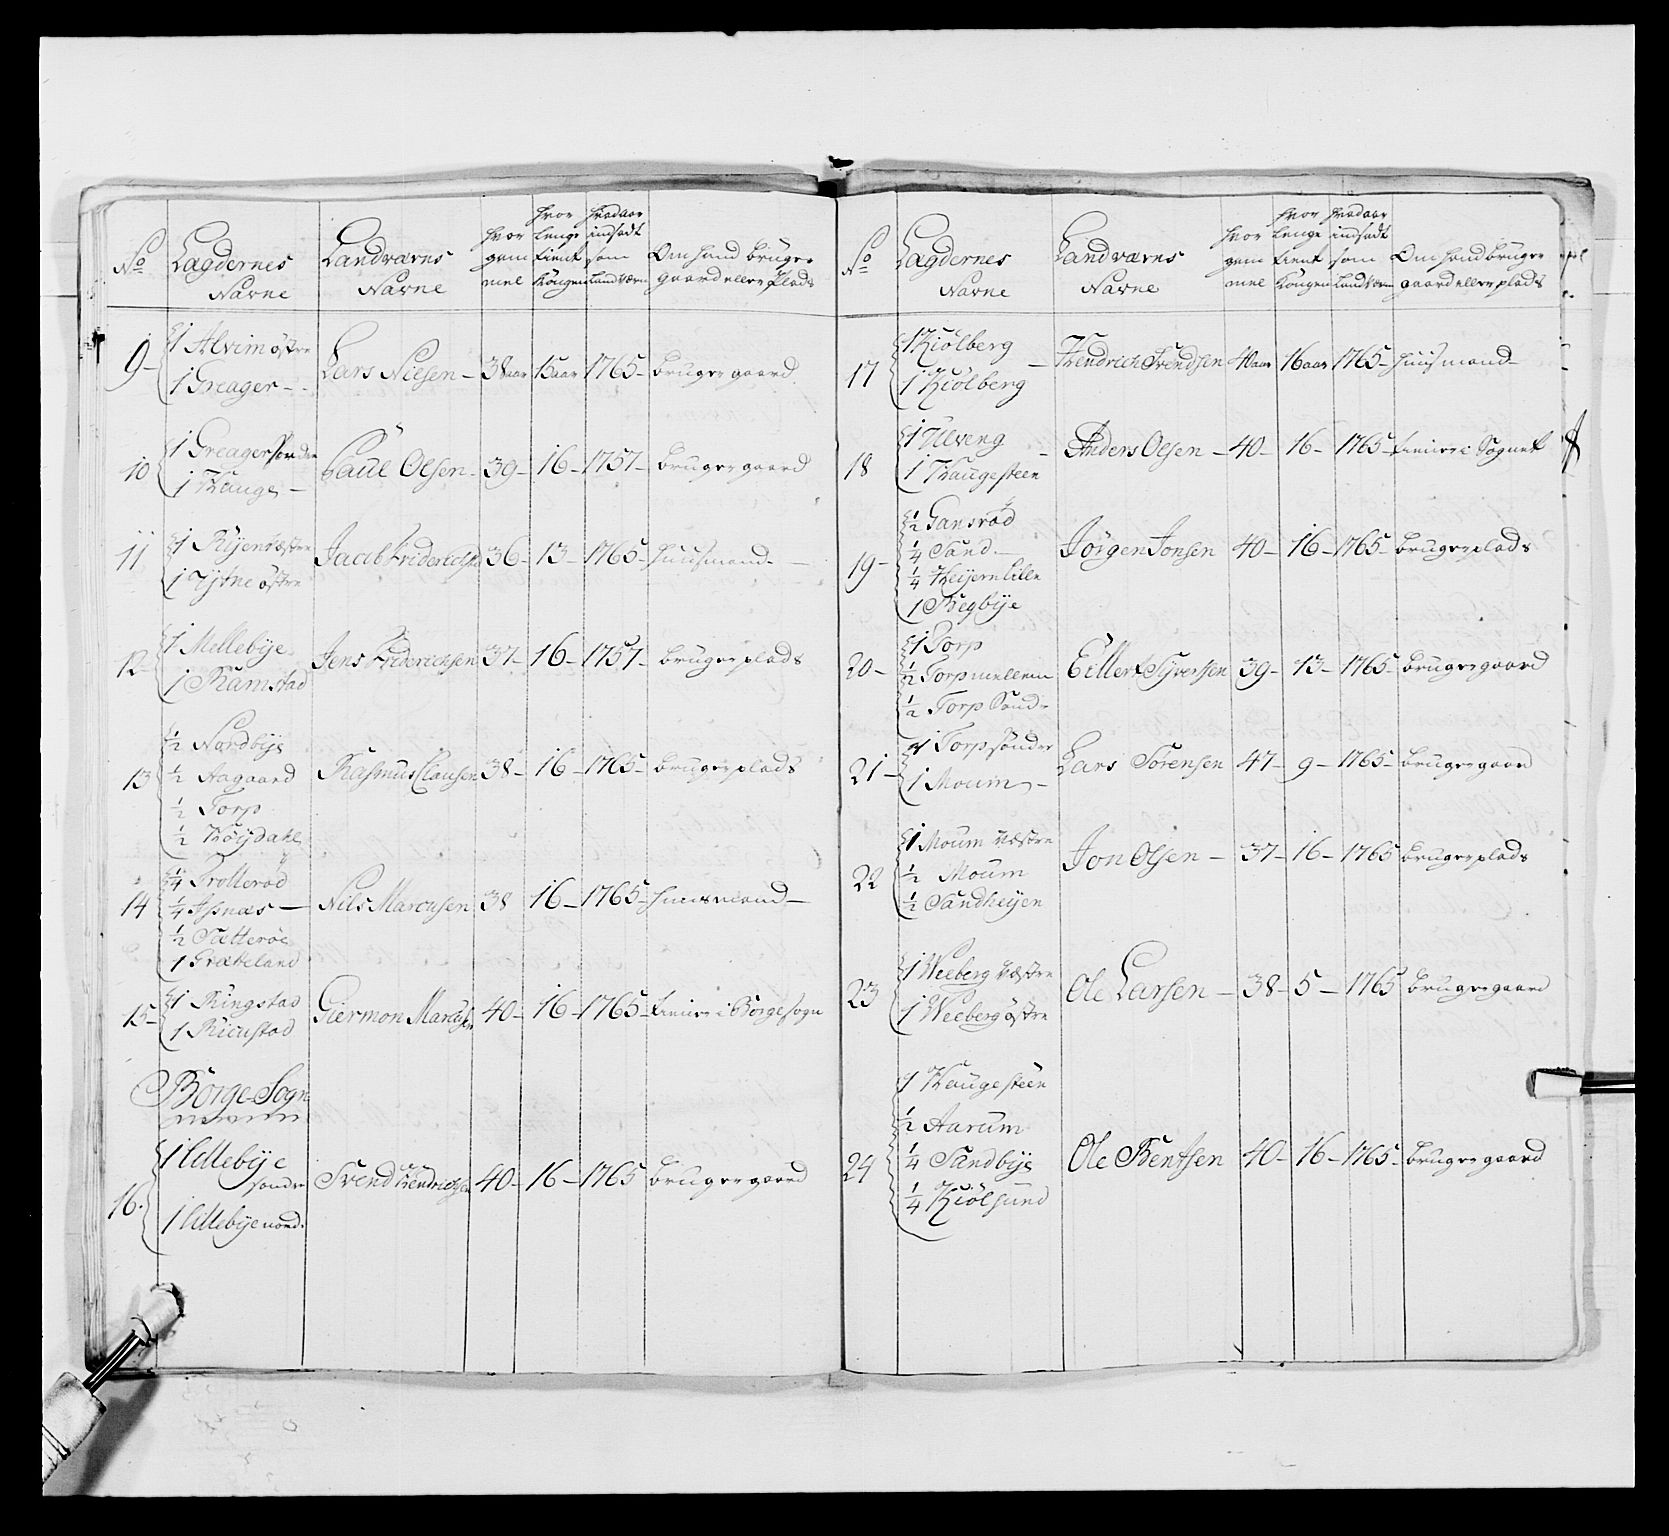 No
Lægdernes Navne
Landværns Navne
hvor gammel
hvor lenge tient Kongen
hvad aar indsadt som Landværn
Om hand bruger gaard eller Plads
9 - 1 Alvim østre
1 Greager -
Lars Nielsen - 38 aar 15 aar 1765 - bruger gaard
10 1 Greager søndre
1 Hauge -
Paul Olsen - 39 - 16 - 1757 - bruger gaard
11 1 Rijen væstre
1 østre
Jacob Friderichs 36 - 13 - 1765 - huusmand -
12 - 1 Mellebije
1 Ramstad
Jens Friderichsen 37 - 16 - 1757 - bruger plads
13 ½ Nordbije
½ Aagaard
½ Torp
½ Høijdahl
Rasmus Clausen 38 - 16 - 1765 - bruger plads
14 ¼ Trotterød
¼ Assnæs -
½ Sætterøe
1 Græbeland
Nils Marcusen 38 16 - 1765 - huusmand -
15 - 1 Ringstad
1 Riiustad
Giermon Marcus 40 - 16 - 1765 - tiener i Borge sogn
Borge Sogn
16. 1 Lillebije søndre
1 Lillebije nord.
Svend Hendrichsen 40 - 16 - 1765 bruger gaard
No
Lægdernes Navne
Landværns Navne
hvor gammel
hvor lenge tient Kongen
hvad aar indsadt som Landværn
Om hand bruger gaard eller plads
17 1 Kiølberg -
1 Kiølberg
Hendrich Svendsen 40 aar 16 aar 1765 - huusmand -
18 1 Ulveng -
1 Haugesteen
Anders Olsen - 40 - 16 - 1765 - tiener i Sognet
19 - ½ Gansrød
¼ Sand -
¼ Heijern lille
1 Begbije
Jørgen Jonsen 40 - 16 - 1765 - bruger plads
20 - 1 Torp
½ Torp mellem
½ Torp Sønd -
Eillert Sijversen 39 - 13 - 1765 - bruger gaard
21 - 1 Torp søndre
1 Moum -
Lars Sørensen 47 - 9 - 1765 - bruger gaard
22 1 Moum væstre
½ Moum
½ Sandheijen
Jon Olsen - 37 - 16 - 1765 bruger plads
23 1 Weeberg væstre
1 Weeberg østre
Ole Larsen - 38 - 5 - 1765 bruger gaard
24 1 Haugesteen
½ Aarum
¼ Sandbije
¼ Kiølsund
Ole Bentsen 40 - 16 - 1765 - bruger gaard